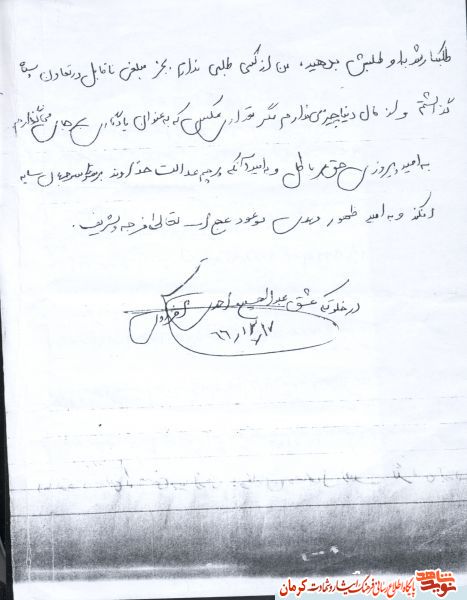 طلبکار شد به او طلبش بدهید، من از کسی طلبی ندارم بجز مبلغی ناقابل در تعاون سپاه
گذاشتم و از مال دنیا چیزی ندارم مگر مقداری عکس که به عنوان یادگاری بجای می‌گذارم
به امید پیروزی حق بر باطل و به امید آنکه پرچم عدالت خداوند بر سراسر جهان سایه
افکند و به امید ظهور مهدی موعود عجل الله تعالی فرجه الشریف.
در خلوتگه عشق عبدالحسین
۶۶/۱۲/۱۷
نوید شاهد
پایگاه اطلاع رسانی فرهنگ ایثار و شهادت کرمان